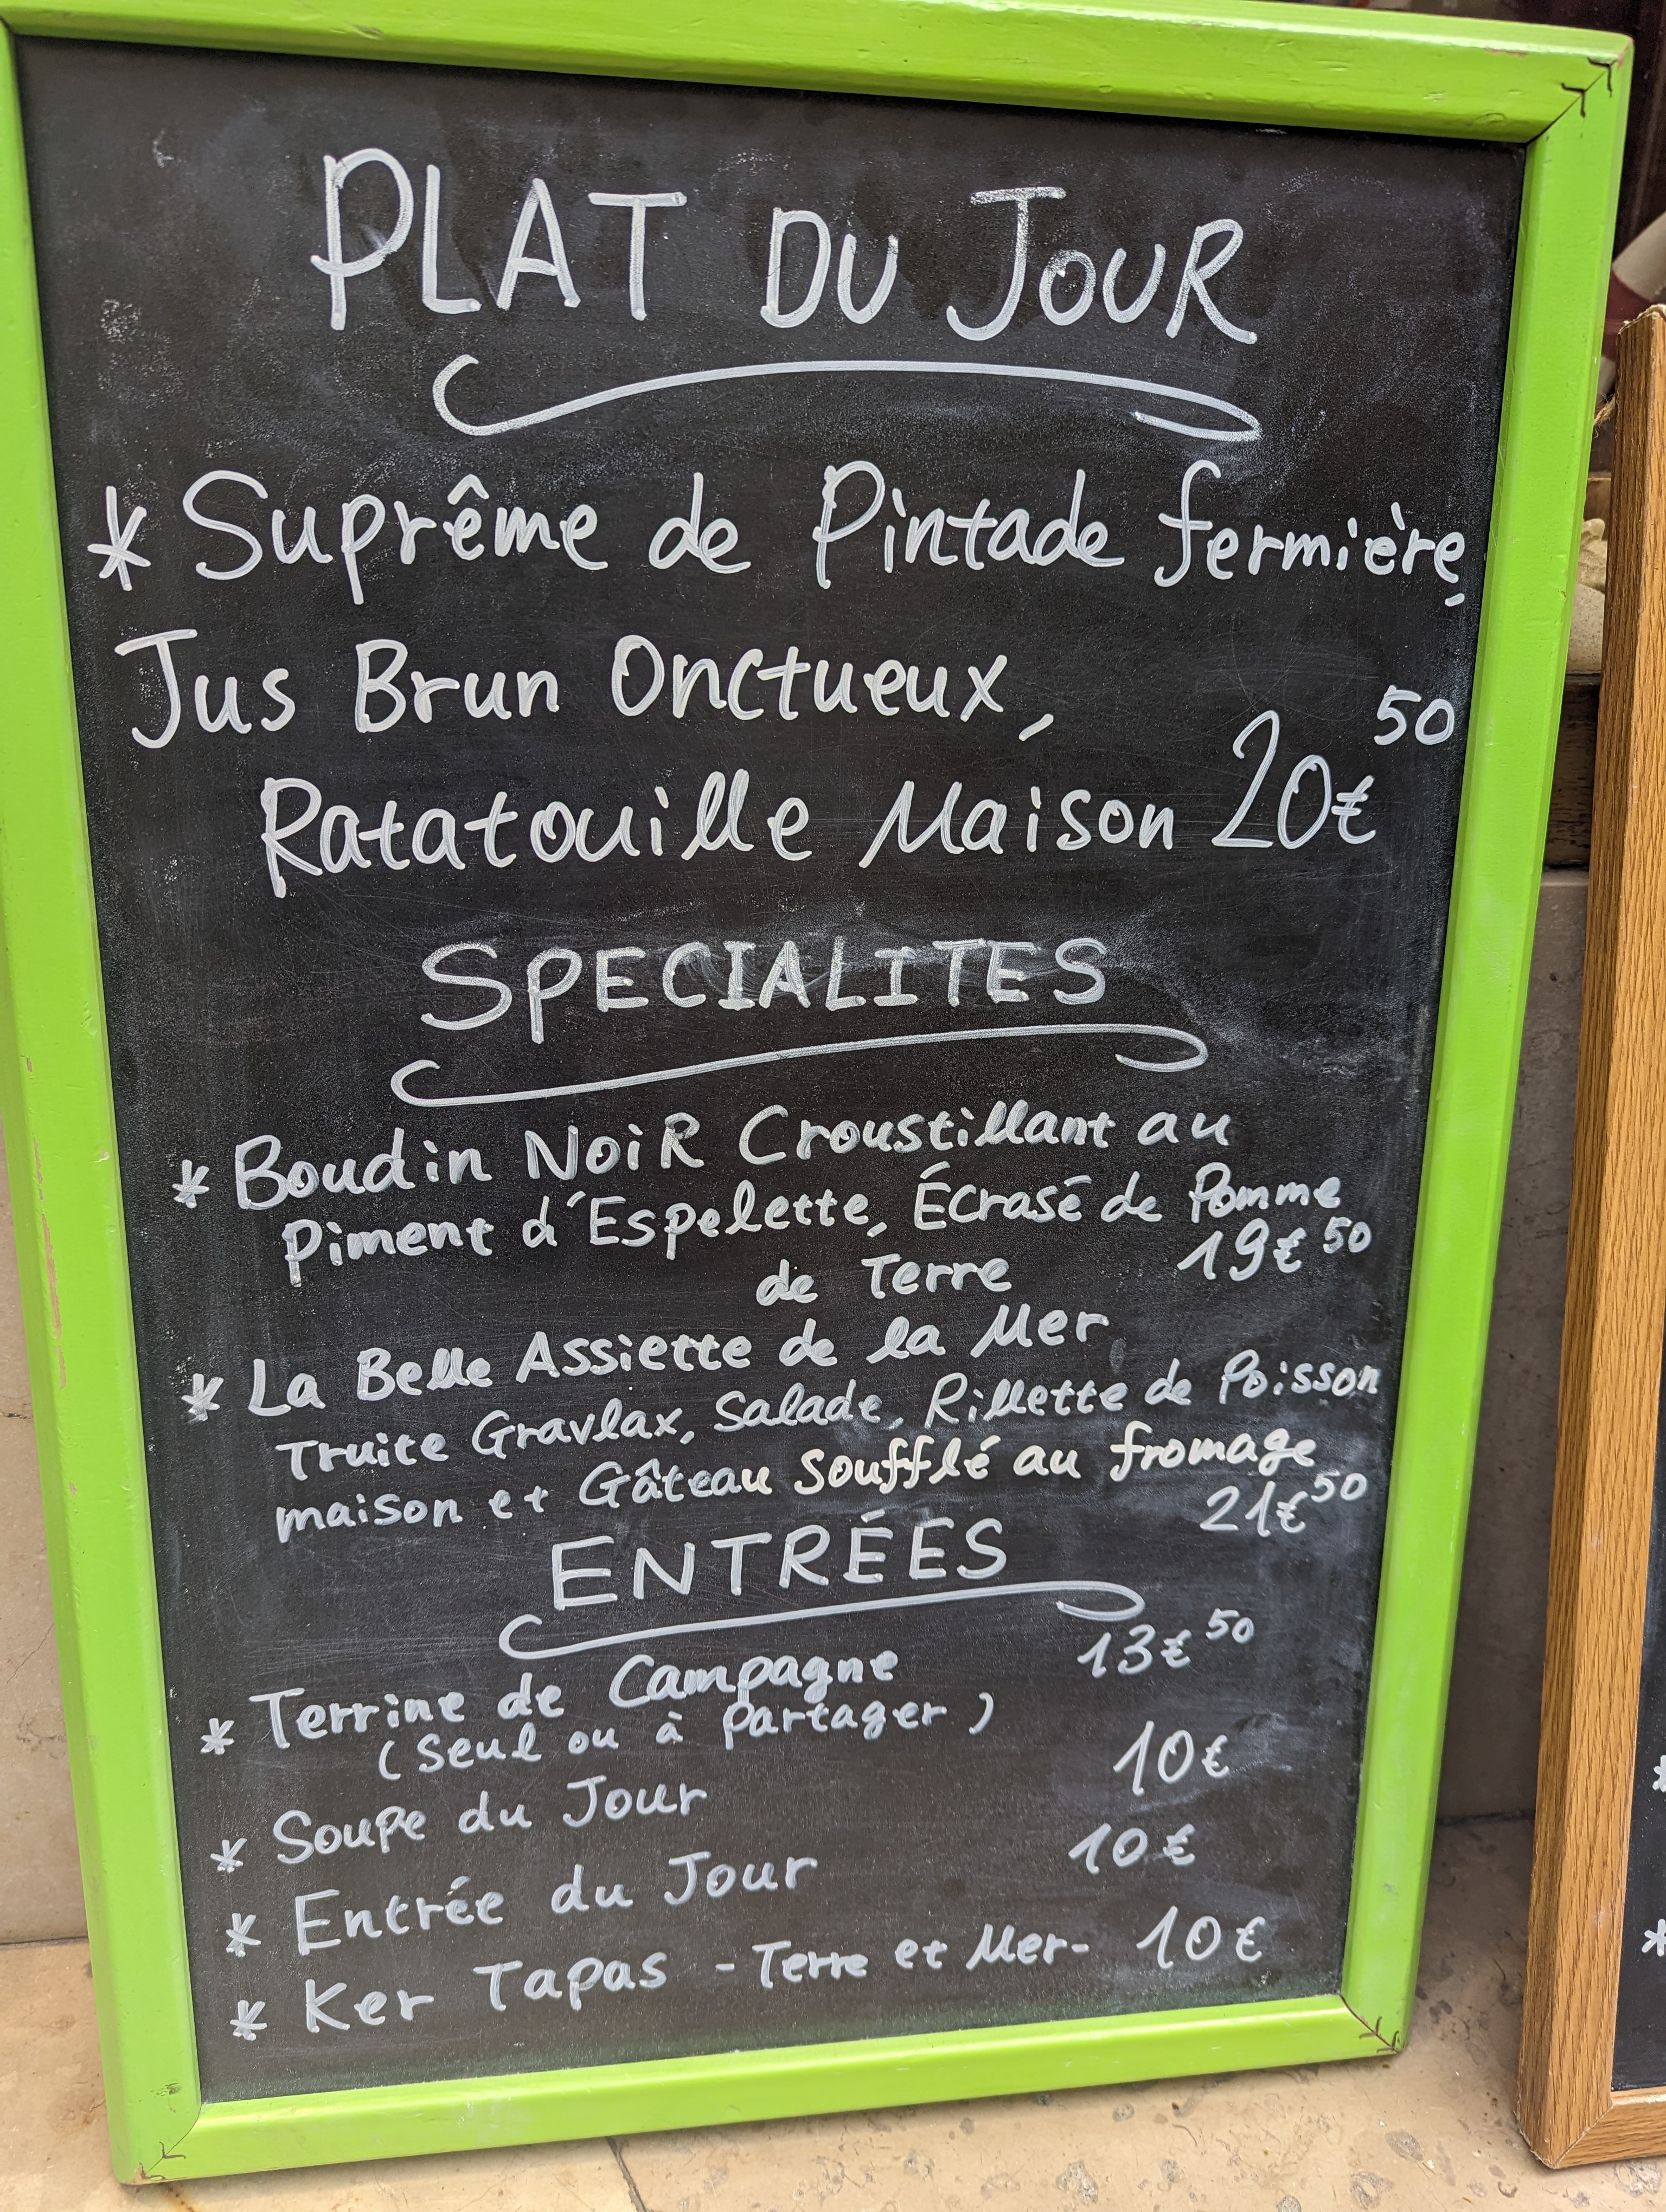 PLAT DU JOUR
* Suprême de Pintade fermière,
Jus Brun Onctueux,
Ratatouille Maison 20€50
SPECIALITES
* Boudin NoiR Croustillant au
Piment d'Espelette, Écrasé de Pomme
de Terre 19€50
* La Belle Assiette de la Mer
Truite Gravlax, Salade, Rillette de Poisson
maison et Gâteau Soufflé au fromage
21€50
ENTRÉES
* Terrine de Campagne 13€50
(Seul ou à Partager)
* Soupe du Jour 10€
* Entrée du Jour 10€
* Ker Tapas - Terre et Mer- 10€